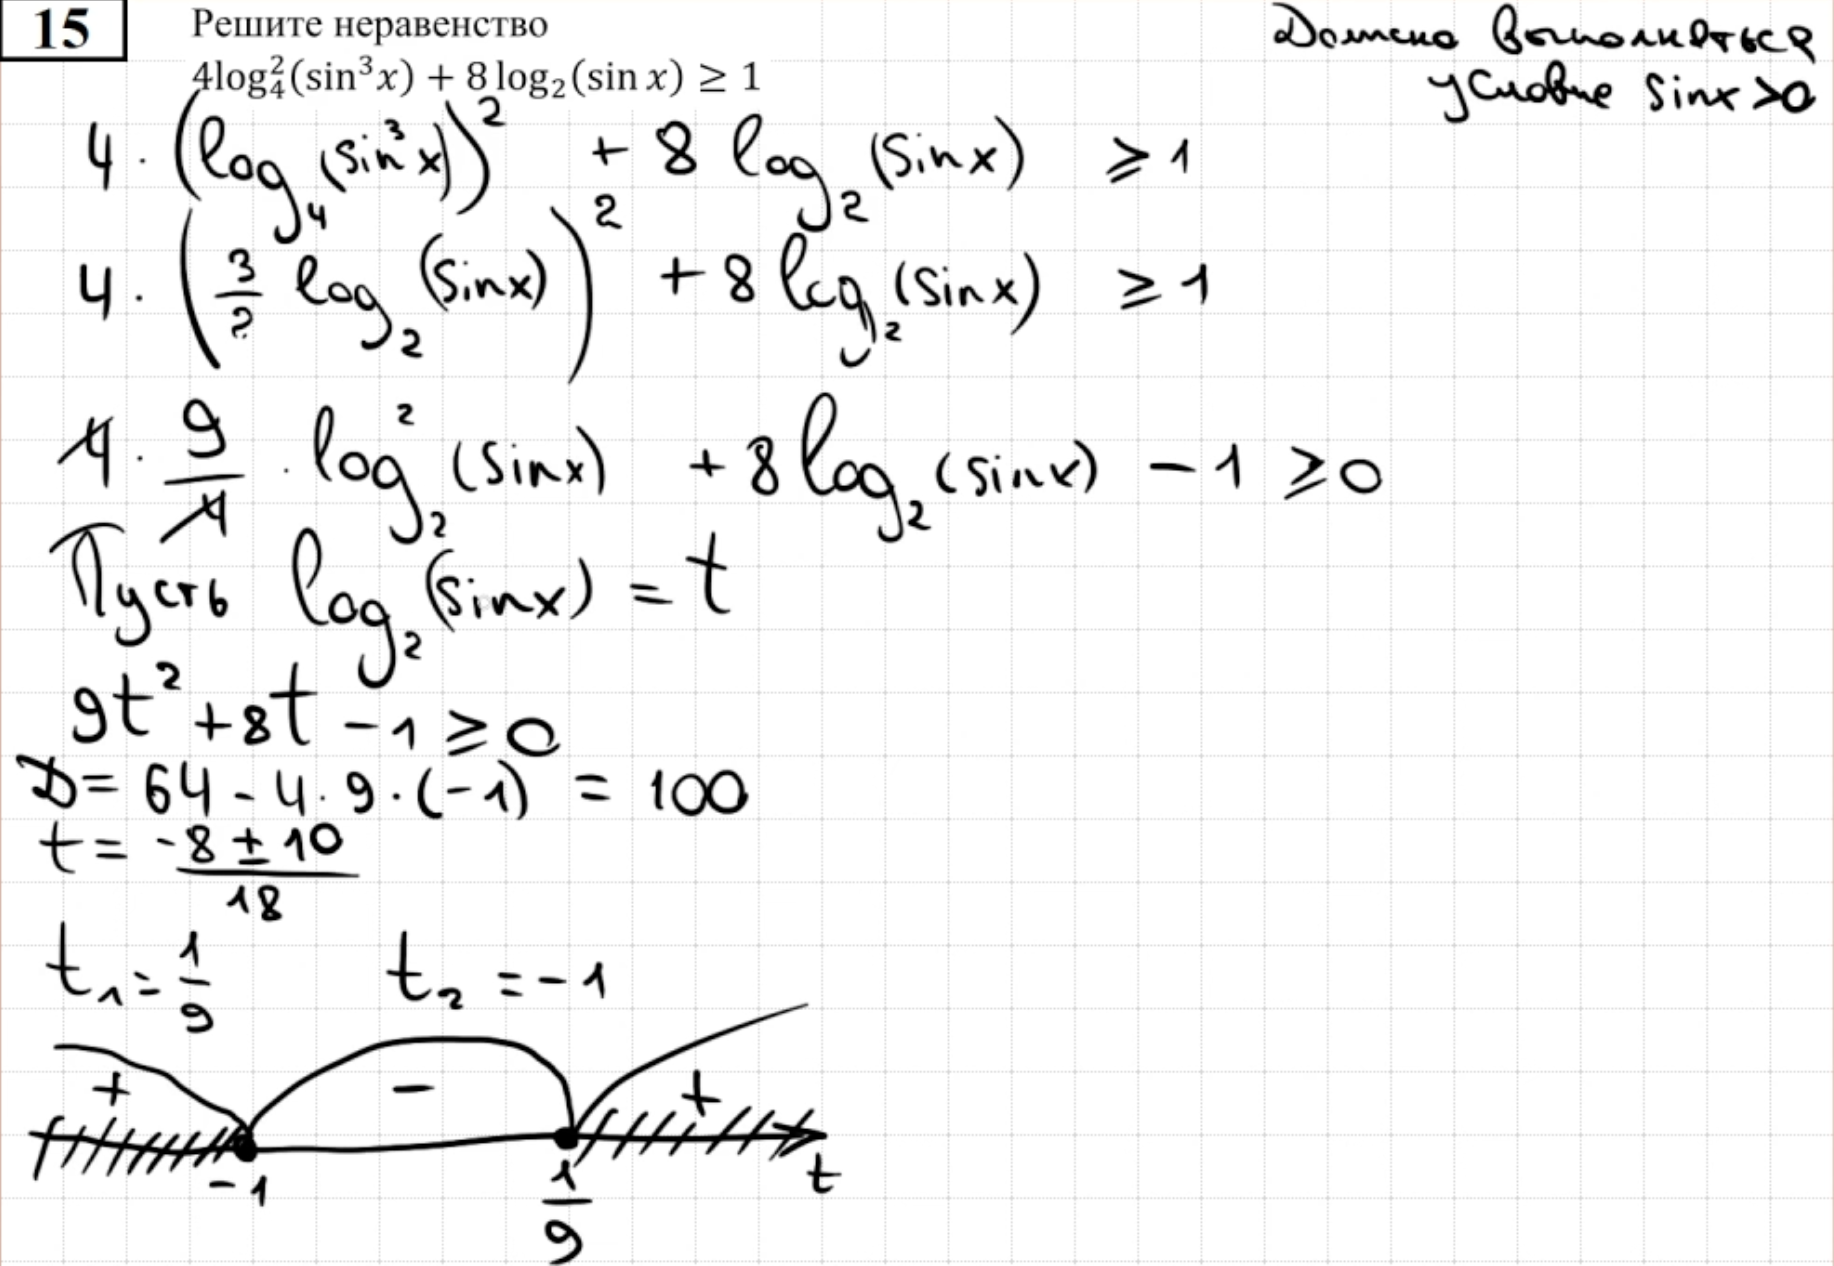 15
Решите неравенство
4log₄²(sin³x) + 8 log₂(sin x) ≥ 1
Должно выполняться
условие sinx>0
4 · (log₄(sin³x))² + 8 log₂(sinx) ≥ 1
4 · (3/2 log₂(sinx))² + 8 log₂(sinx) ≥ 1
4 · 9/4 · log₂²(sinx) + 8 log₂(sinx) − 1 ≥ 0
Пусть log₂(sinx) = t
9t² + 8t − 1 ≥ 0
D = 64 − 4 · 9 · (−1) = 100
t = (−8 ± 10)/18
t₁ = 1/9 t₂ = −1
+ − +
−1 1/9 t